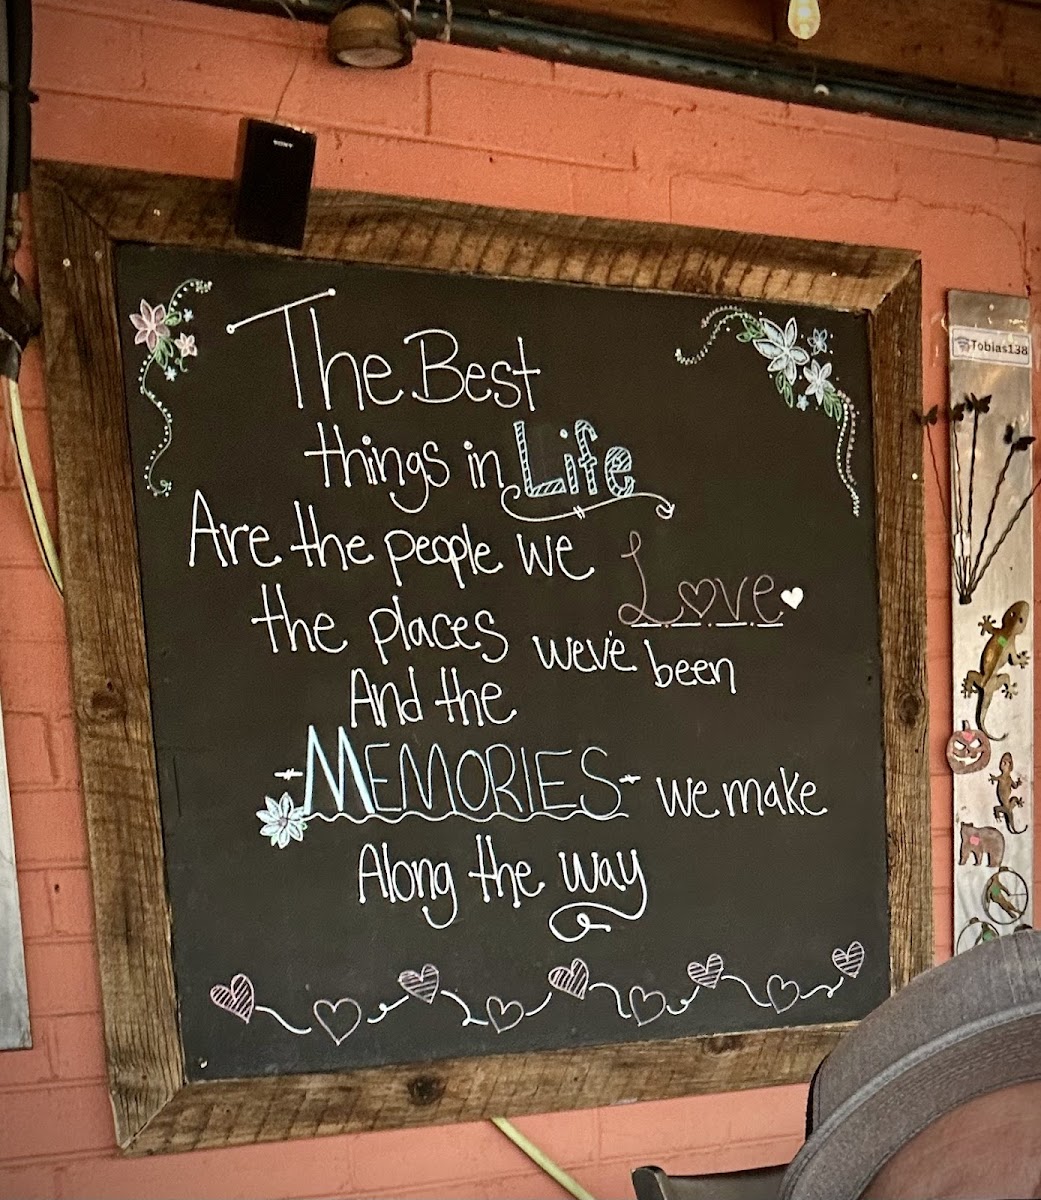 SONY
The Best
things in Life
Are the people we Love
the places we've been
And the
MEMORIES we make
Along the way
Tobias138